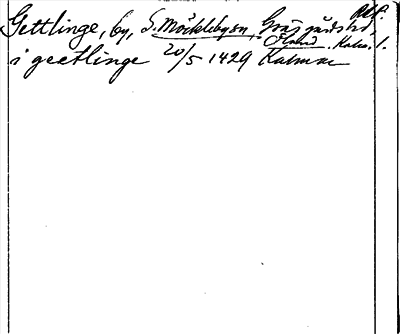 Alf.
Gettlinge, by, S. Möckleby sn, Gräsgårds hd
Öland. Kalm. l.
i geetlinge 20/5 1429 Kalmar